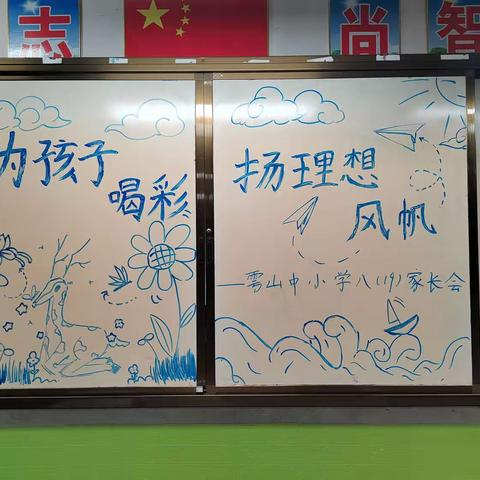 志 尚 智
为孩子
喝彩
扬理想
风帆
—雪山中小学八(19)家长会